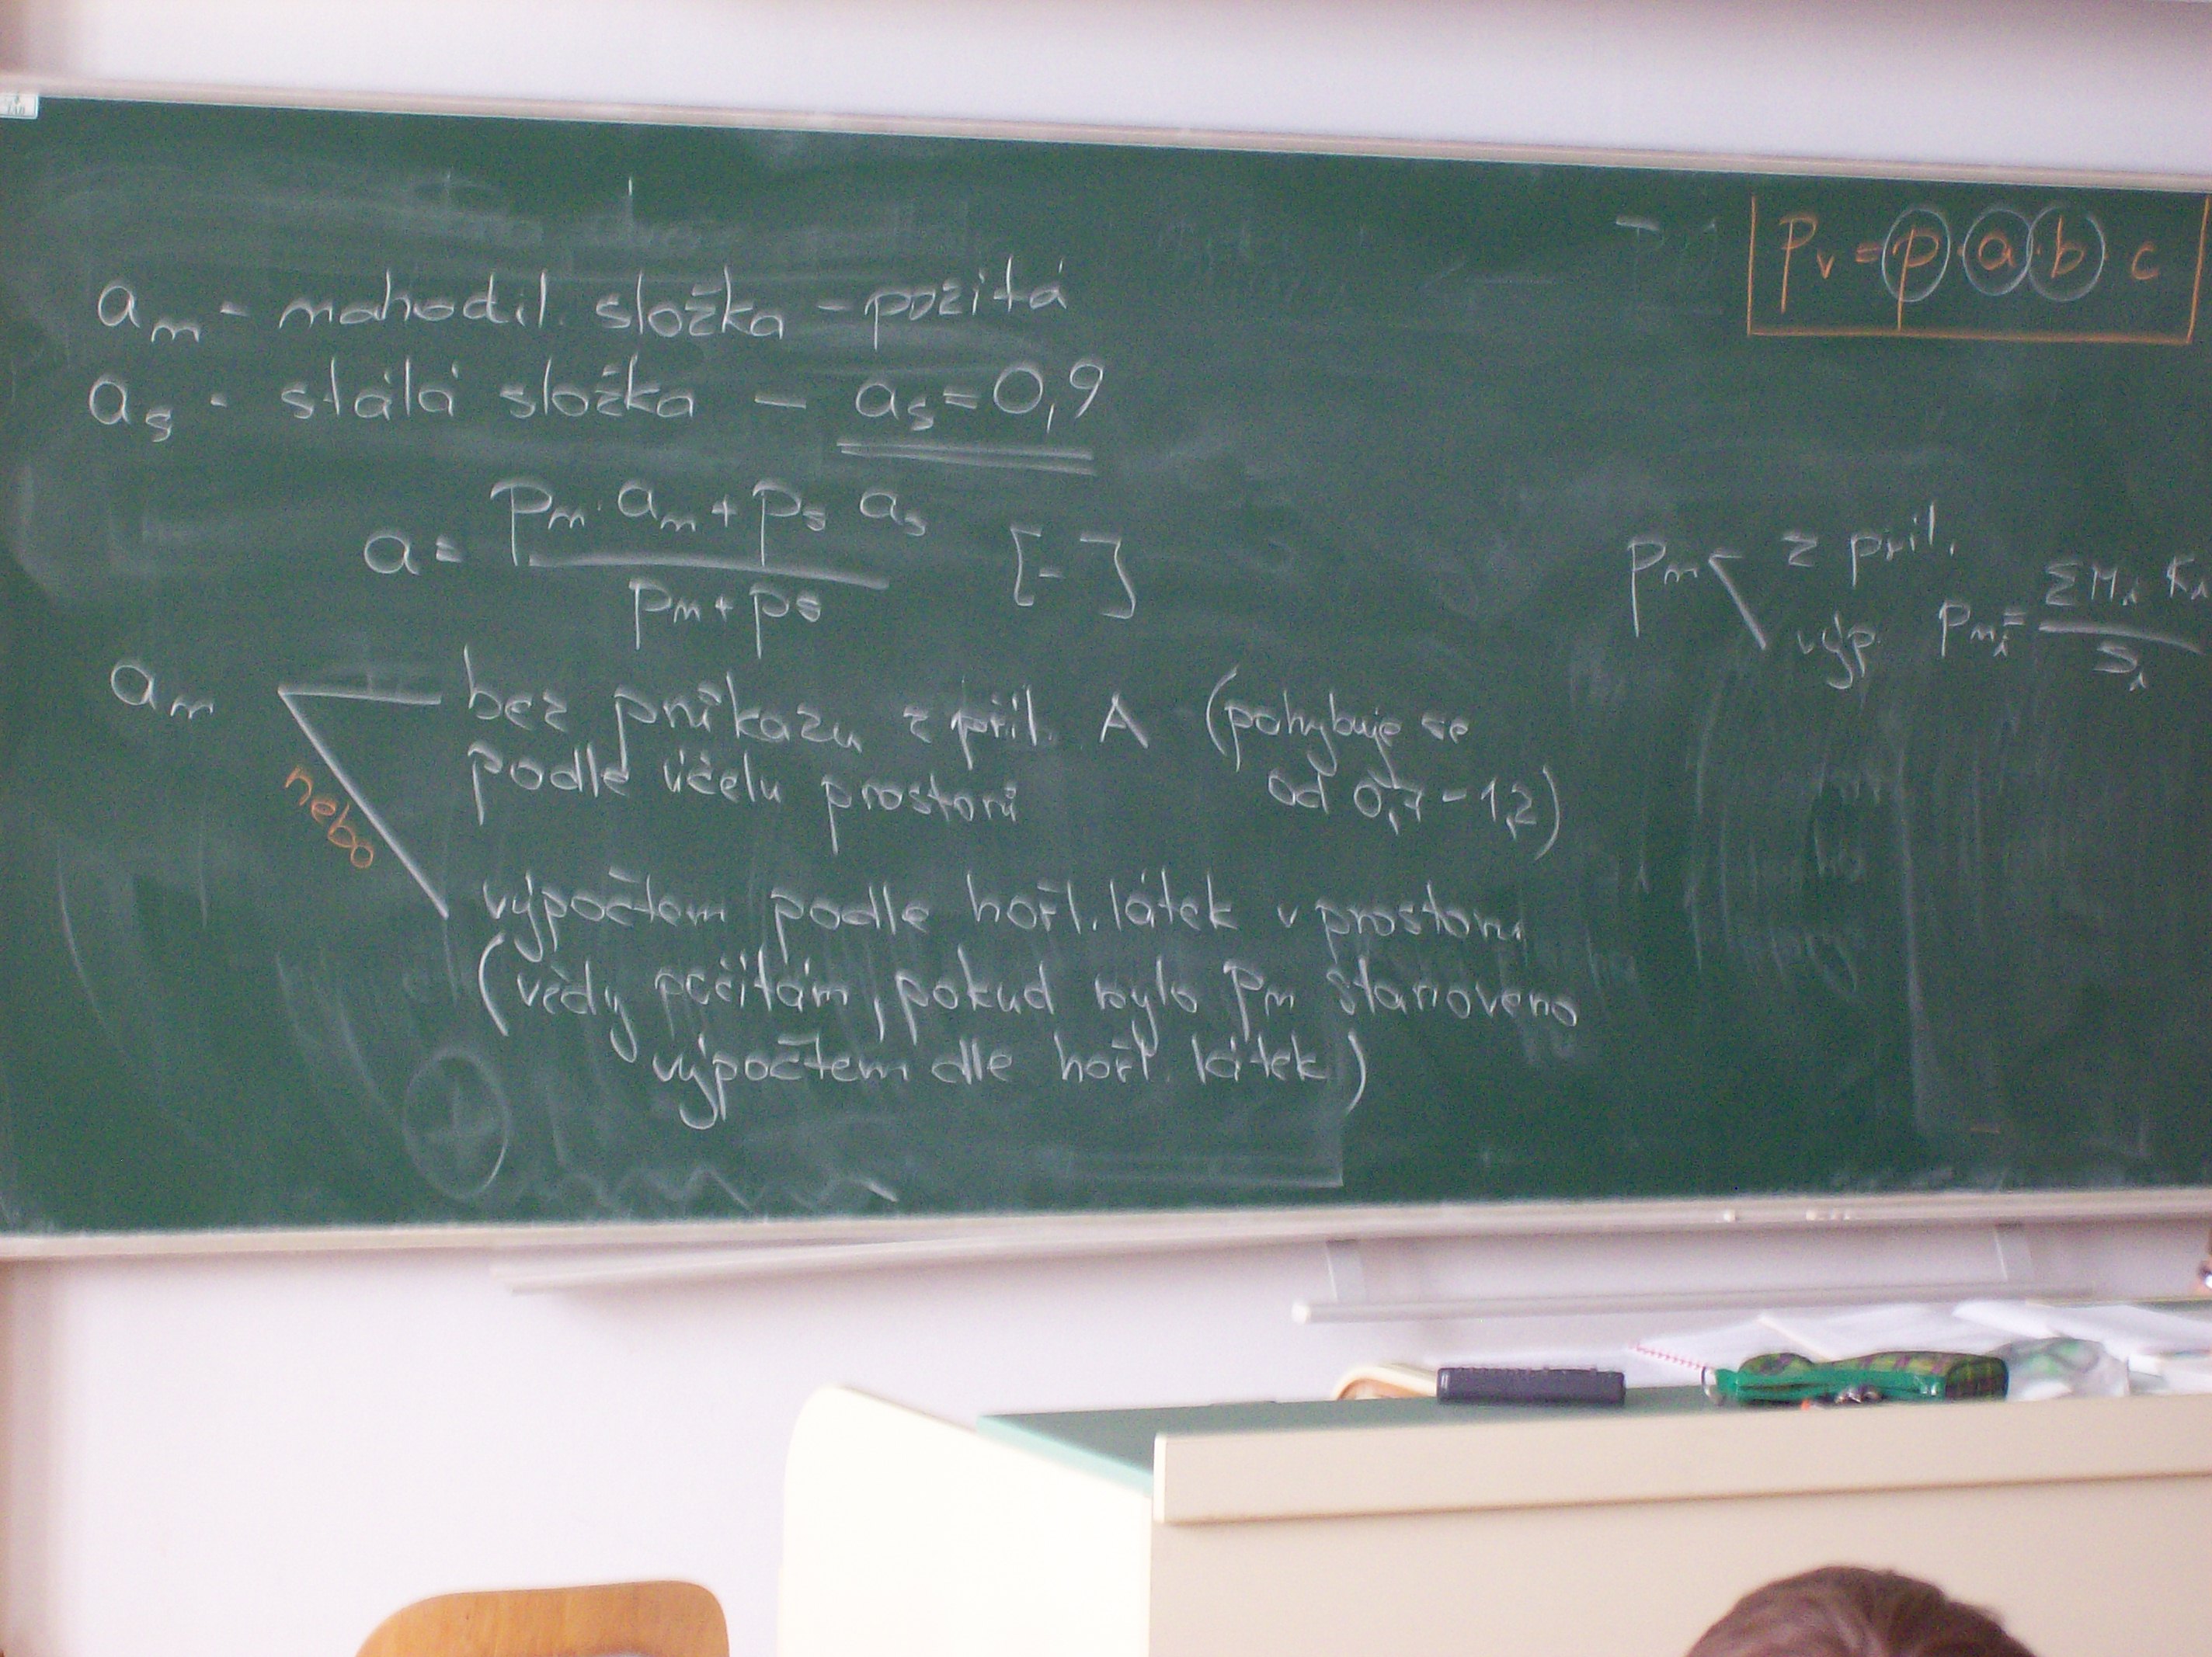 Pv = p · a · b · c
an - nahodil. složka - požitá
as - stálá složka - as = 0,9
a = (pn · an + ps as) / (pn + ps) [-]
pn z příl.
výp. pni = ΣMi Ki / Si
an bez průkazu z příl. A (pohybuje se
podle účelu prostorů od 0,7 - 1,2)
nebo
výpočtem podle hořl. látek v prostoru
(vždy počítám, pokud bylo pn stanoveno
výpočtem dle hořl. látek)